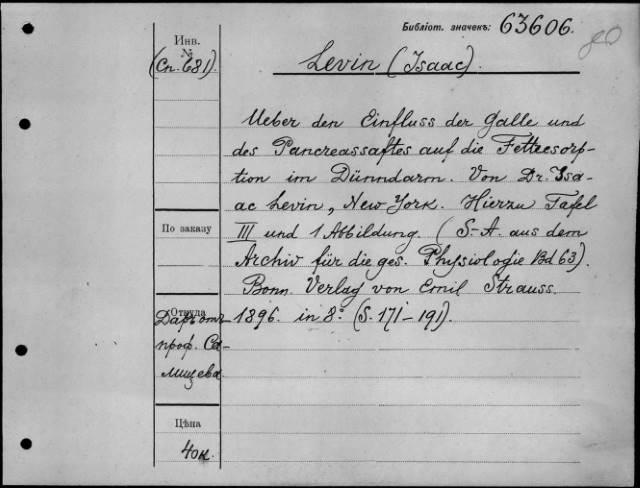 Библіот. значекъ: 63606.
Инв.
№
(Сп. 681).
Levin (Isaac).
Ueber den Einfluss der Galle und
des Pancreassaftes auf die Fettresorp-
tion im Dünndarm. Von Dr. Isa-
ac Levin, New York. Hierzu Tafel
III und 1 Abbildung. (S.-A. aus dem
Archiv für die ges. Physiologie Bd 63).
Bonn. Verlag von Emil Strauss.
1896. in 8º (S. 171-191).
По заказу
Откуда
Даръ отъ
проф. Са-
мицева
Цѣна
40 к.